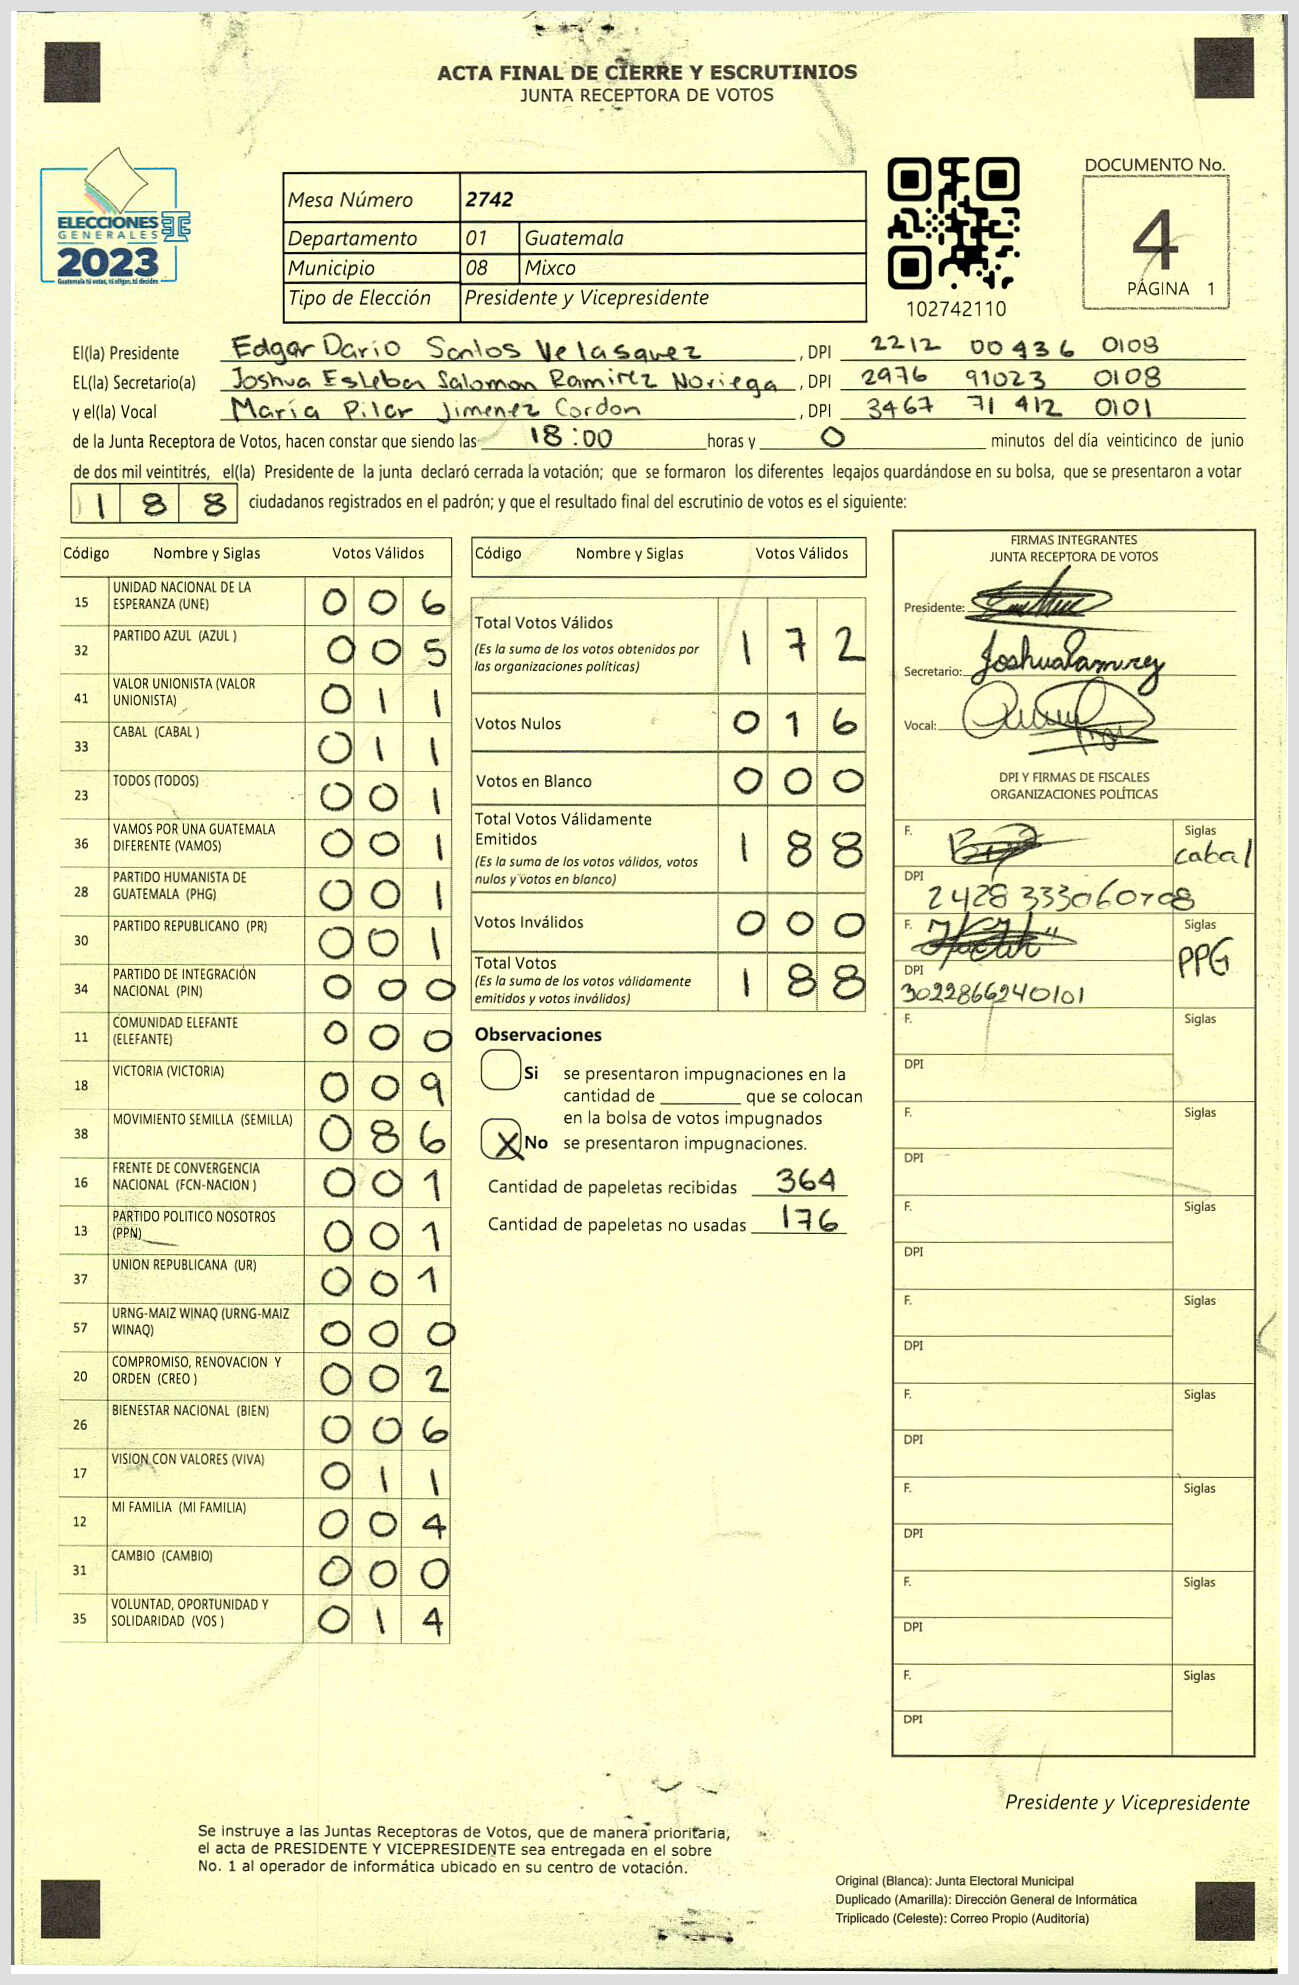 ACTA FINAL DE CIERRE Y ESCRUTINIOS
JUNTA RECEPTORA DE VOTOS
ELECCIONES
GENERALES
2023
Guatemala tú votas, tú eliges, tú decides
Mesa Número 2742
Departamento 01 Guatemala
Municipio 08 Mixco
Tipo de Elección Presidente y Vicepresidente
102742110
DOCUMENTO No.
4
PÁGINA 1
El(la) Presidente Edgar Dario Santos Velasquez , DPI 2212 00436 0108
EL(la) Secretario(a) Joshua Esteban Salomon Ramirez Noriega , DPI 2976 91023 0108
y el(la) Vocal María Pilar Jimenez Cordon , DPI 3467 71412 0101
de la Junta Receptora de Votos, hacen constar que siendo las 18:00 horas y 0 minutos del día veinticinco de junio
de dos mil veintitrés, el(la) Presidente de la junta declaró cerrada la votación; que se formaron los diferentes legajos guardándose en su bolsa, que se presentaron a votar
188 ciudadanos registrados en el padrón; y que el resultado final del escrutinio de votos es el siguiente:
Código Nombre y Siglas Votos Válidos
15 UNIDAD NACIONAL DE LA ESPERANZA (UNE) 006
32 PARTIDO AZUL (AZUL ) 005
41 VALOR UNIONISTA (VALOR UNIONISTA) 011
33 CABAL (CABAL ) 011
23 TODOS (TODOS) 001
36 VAMOS POR UNA GUATEMALA DIFERENTE (VAMOS) 001
28 PARTIDO HUMANISTA DE GUATEMALA (PHG) 001
30 PARTIDO REPUBLICANO (PR) 001
34 PARTIDO DE INTEGRACIÓN NACIONAL (PIN) 000
11 COMUNIDAD ELEFANTE (ELEFANTE) 000
18 VICTORIA (VICTORIA) 009
38 MOVIMIENTO SEMILLA (SEMILLA) 086
16 FRENTE DE CONVERGENCIA NACIONAL (FCN-NACION ) 001
13 PARTIDO POLITICO NOSOTROS (PPN) 001
37 UNION REPUBLICANA (UR) 001
57 URNG-MAIZ WINAQ (URNG-MAIZ WINAQ) 000
20 COMPROMISO, RENOVACION Y ORDEN (CREO ) 002
26 BIENESTAR NACIONAL (BIEN) 006
17 VISION CON VALORES (VIVA) 011
12 MI FAMILIA (MI FAMILIA) 004
31 CAMBIO (CAMBIO) 000
35 VOLUNTAD, OPORTUNIDAD Y SOLIDARIDAD (VOS ) 014
Código Nombre y Siglas Votos Válidos
Total Votos Válidos 172
(Es la suma de los votos obtenidos por
las organizaciones políticas)
Votos Nulos 016
Votos en Blanco 000
Total Votos Válidamente
Emitidos 188
(Es la suma de los votos válidos, votos
nulos y votos en blanco)
Votos Inválidos 000
Total Votos 188
(Es la suma de los votos válidamente
emitidos y votos inválidos)
Observaciones
Si se presentaron impugnaciones en la
cantidad de ________ que se colocan
en la bolsa de votos impugnados
X No se presentaron impugnaciones.
Cantidad de papeletas recibidas 364
Cantidad de papeletas no usadas 176
FIRMAS INTEGRANTES
JUNTA RECEPTORA DE VOTOS
Presidente:
Secretario: Joshua Ramirez
Vocal:
DPI Y FIRMAS DE FISCALES
ORGANIZACIONES POLÍTICAS
F. Siglas cabal
DPI 2428 333060708
F. Siglas PPG
DPI 3022866240101
F. Siglas
DPI
F. Siglas
DPI
F. Siglas
DPI
F. Siglas
DPI
F. Siglas
DPI
F. Siglas
DPI
F. Siglas
DPI
F. Siglas
DPI
Presidente y Vicepresidente
Se instruye a las Juntas Receptoras de Votos, que de manera prioritaria,
el acta de PRESIDENTE Y VICEPRESIDENTE sea entregada en el sobre
No. 1 al operador de informática ubicado en su centro de votación.
Original (Blanca): Junta Electoral Municipal
Duplicado (Amarilla): Dirección General de Informática
Triplicado (Celeste): Correo Propio (Auditoría)